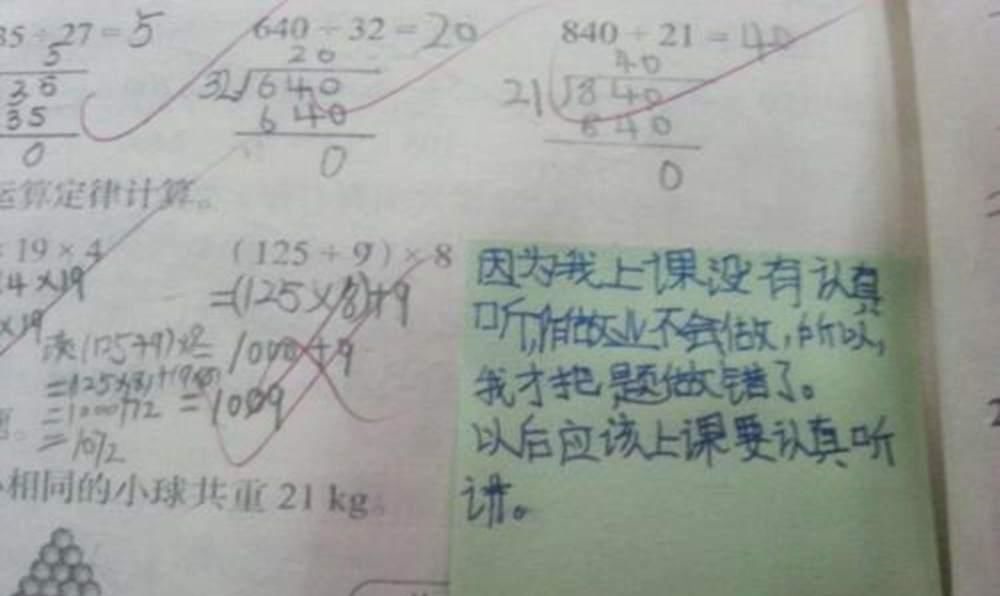 35 ÷ 27 = 5
5
35
35
0
640 ÷ 32 = 20
20
32√640
640
0
840 ÷ 21 = 40
40
21√840
840
0
运算定律计算。
× 19 × 4
4×19
×19
(125 + 9) × 8
=(125×8)+9
1000+9
=1009
(125+9)×8
=125×8)+(9×8)
=1000+72
=1072
相同的小球共重 21 kg。
因为我上课没有认真
听,作做业不会做,所以,
我才把题做错了。
以后应该上课要认真听
讲。